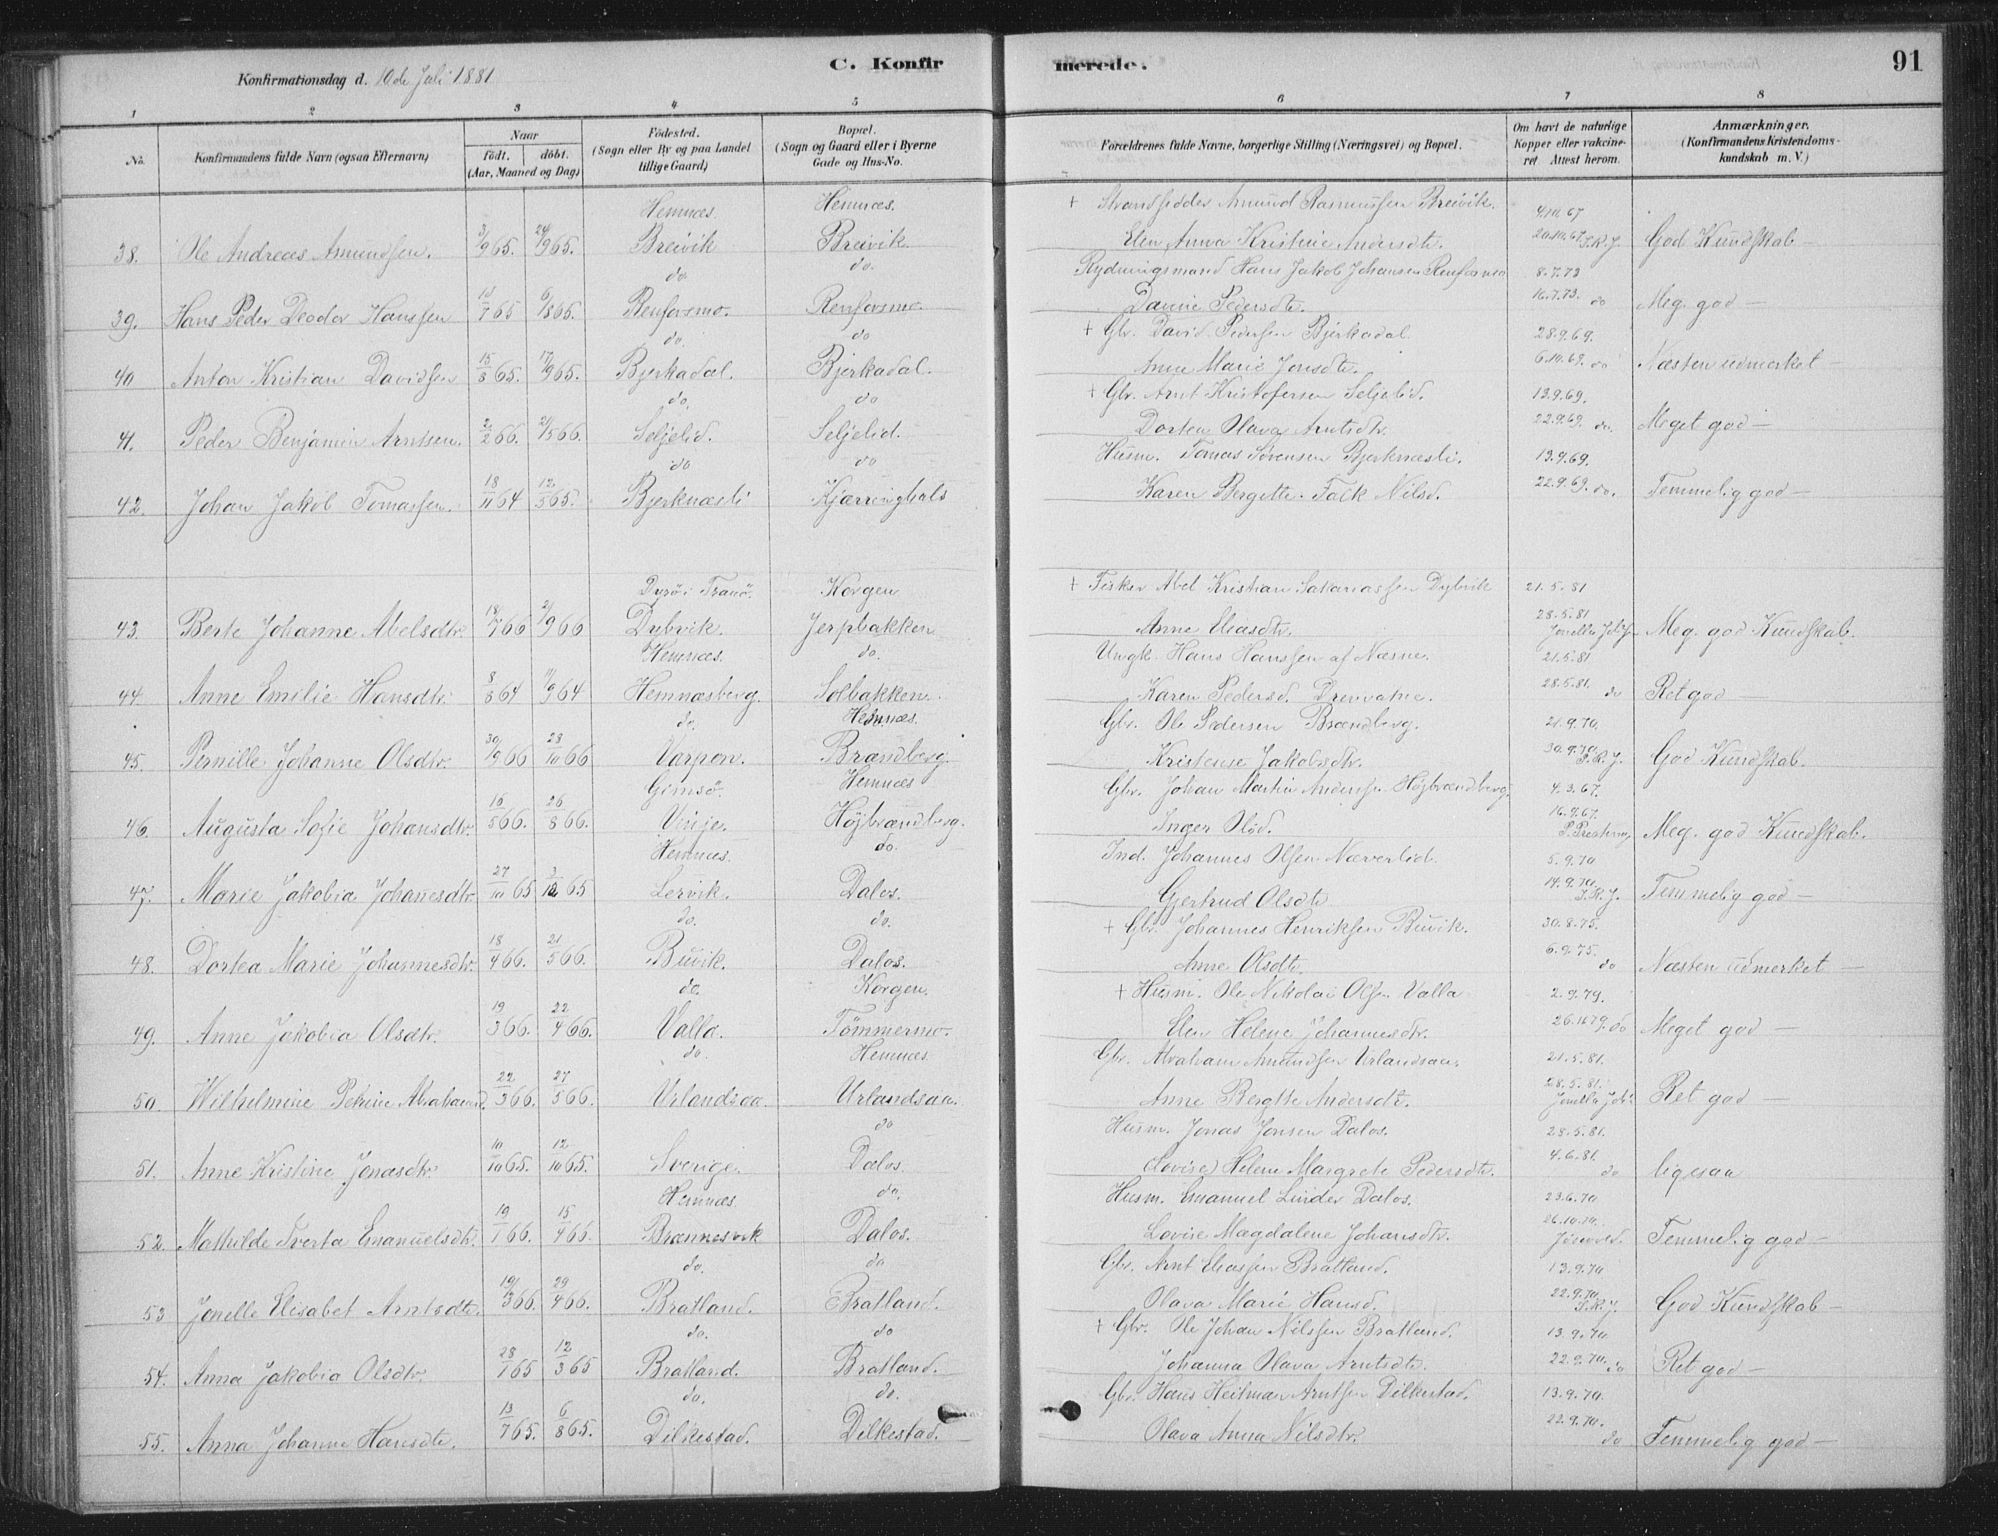 Konfirmationsdag d. 10de Juli 1881
C. Konfirmerede.
91
1 2 3 4 5 6 7 8
No. Konfirmandens fulde Navn (ogsaa Efternavn) Naar født. døbt. (Aar, Maaned og Dag) Fødested. (Sogn eller By og paa Landet tillige Gaard) Bopæl. (Sogn og Gaard eller i Byerne Gade og Hus-No. Forældrenes fulde Navne, borgerlige Stilling (Næringsvei) og Bopæl. Om havt de naturlige Kopper eller vaccineret. Attest herom. Anmærkninger. (Konfirmandens Kristendomskundskab m. V.)
Hemnæs. Hemnæs. + Strandsidder Amund Rasmussen Breivik. 4.10.67
38. Ole Andreas Amundsen. 3/9 65. 24/9 65. Breivik Breivik Elen Anna Kristine Andersdtr. 20.10.67 God Kundskab —
do do. Rydningsmand Hans Jakob Johansen Renforsmo 8.7.73
39. Hans Peder Deodor Hanssen 13/7 65 6/8 65. Renforsmo. Renforsmo Danie Pedersdtr. 16.7.73. do Meg. god —
do. do + Gbr. David Pedersen Bjerkadal. 28.9.69.
40 Anton Kristian Davidsen 15/3 65. 17/9 65. Bjerkadal. Bjerkadal. Anne Marie Jonsdtr. 6.10.69. do Næsten udmerket —
do. do + Gbr. Arnt Kristofersen Seljelid. 13.9.69.
41. Peder Benjamin Arntsen. 2/2 66. 21/5 66. Seljelid. Seljelid. Dortea Olava Arntsdtr. 22.9.69. do. Meget god —
do do Husm. Tomas Sørensen Bjerknæsli. 13.9.69.
42. Johan Jakob Tomassen. 18/11 64 12/3 65. Bjerknæsli Kjærringhals Karen Bergitte Falk Nilsd. 22.9.69. do. Temmelig god —
Dyrø i Tranø. Korgen + Fisker Abel Kristian Sakariassen Dybvik 21.5.81
43. Berte Johanne Abelsdtr. 18/7 66 2/9 66 Dybvik. Jerpbakken Anne Eliasdtr. 28.5.81 Meg. god Kundskab.
Hemnæs. do. Ungk. Hans Hanssen af Næsne. 21.5.81
44. Anne Emilie Hansdtr. 8/8 64 11/9 64 Hemnæsberg. Solbakken. Karen Pedersd. Drevvatne. 28.5.81. do Ret god —
do. Hemnæs. Gbr. Ole Pedersen Brændberg. 21.9.70.
45. Pernille Johanne Olsdtr. 30/9 66 28/10 66 Varpen. Brændberg Kristense Jakobsdtr. 30.9.70 God Kundskab.
Gimsø. Hemnæs Gbr. Johan Martin Anderssen Højbrændberg. 4.3.67.
46. Augusta Sofie Johansdtr. 16/5 66. 26/8 66. Vinje. Højbrændberg. Inger Olsd. 16.9.67. Meg. god Kundskab.
Hemnæs. do. Ind. Johannes Olsen Næverlid. 5.9.70
47. Marie Jakobia Johanesdtr. 27/10 65 3/12 65 Lervik. Dalos. Gjertrud Olsdtr. 14.9.70. Temmelig god —
do. do. + Gbr. Johannes Henriksen Buvik. 30.8.75.
48. Dortea Marie Johannesdtr. 18/4 66. 21/5 66. Buvik. Dalos. Anne Olsdtr. 6.9.75. do Næsten udmerket —
do. Korgen. + Husm. Ole Nikolai Olsen Valla 2.9.79.
49. Anne Jakobia Olsdtr. 19/3 66. 22/4 66. Valla. Tømmermo. Elen Helene Johannesdtr. do Meget god —
do. Hemnæs. Gbr. Abraham Amundsen Urlandsaa. 21.5.81.
50. Wilhelmine Petrine Abrahamsd. 22/3 66. 27/5 66. Urlandsaa. Urlandsaa. Anne Bergtte Andersdtr. 28.5.81. Ret god —
do Husm. Jonas Jonsen Dalos. 28.5.81.
51. Anne Kristine Jonasdtr. 10/10 65. 12/10 65. Sverige. Dalos. Lovise Helene Margrete Pedersdtr. 4.6.81. do ligesaa
Hemnæs do. Husm. Emanuel Linder Dalos. 23.6.70
52. Mathilde Emanuelsdtr. 19/1 66. 15/4 66. Brennesvik Dalos. Lovise Magdalene Johansdtr. Temmelig god —
do. do Gbr. Arnt Eliassen Bratland. 13.9.70
53 Jonelle Elisabet Arntsdtr. 19/3 66. 29/4 66. Bratland. Bratland. Olava Marie Hansd. 22.9.70. God Kundskab —
do. do + Gbr. Ole Johan Nilssen Bratland. 13.9.70
54. Anna Jakobia Olsdtr. 28/1 65 12/3 65 Bratland. Bratland. Johanna Olava Arntsdtr. 22.9.70. do Ret god —
do. do. Gbr. Hans Heitman Arntsen Dilkestad. 13.9.70.
55. Anna Johanne Hansdtr. 13/7 65. 6/8 65. Dilkestad. Dilkestad. Olava Anna Nilsdtr. 22.9.70. do Temmelig god —